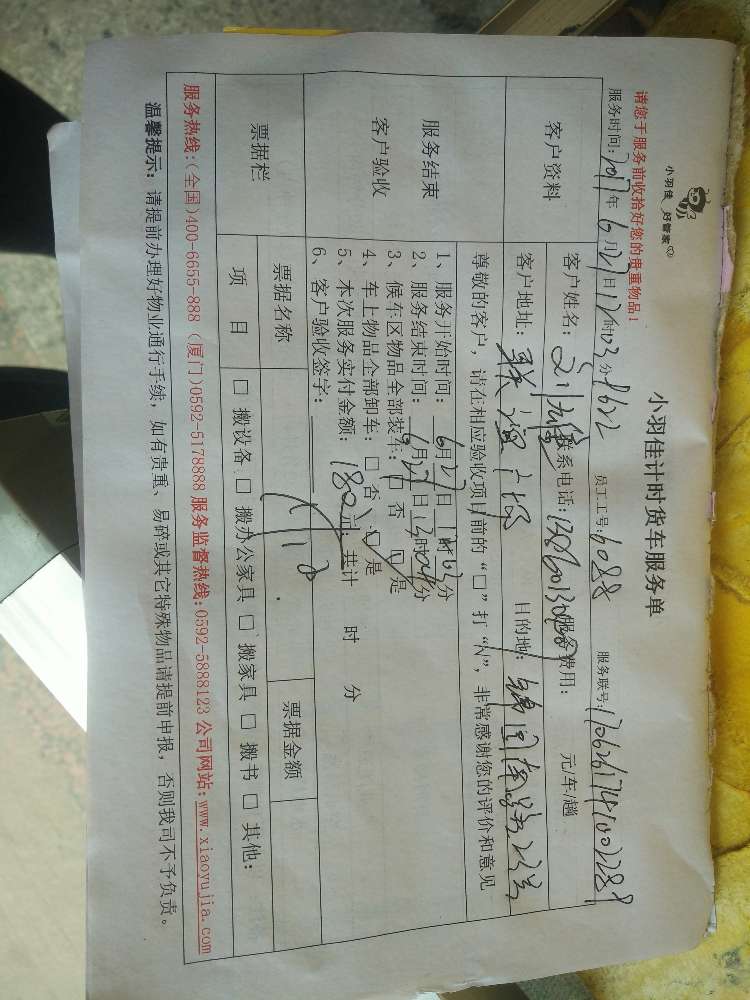 小羽佳 好管家
小羽佳计时货车服务单
请您于服务前收拾好您的贵重物品!
服务时间:2017年6月27日12时03分 8622 员工工号:6088 服务联号:1706261741002288
客户资料
客户姓名: 联系电话: 服务费用: 元/车/趟
客户地址: 目的地:
尊敬的客户,请在相应验收项目前的“□”打“√”,非常感谢您的评价和意见
服务结束
客户验收
1、服务开始时间:6月27日12时03分
2、服务结束时间:6月27日13时04分
3、候车区物品全部装车:□否 □是
4、车上物品全部卸车:□否 □是
5、本次服务实付金额:180元;共计 时 分
6、客户验收签字:
票据栏 票据名称 票据金额
项目 □搬设备 □搬办公家具 □搬家具 □搬书 □其他:
服务热线:(全国)400-6655-888 (厦门)0592-5178888 服务监督热线:0592-5888123 公司网站:www.xiaoyujia.com
温馨提示:请提前办理好物业通行手续,如有贵重、易碎或其它特殊物品请提前申报,否则我司不予负责。